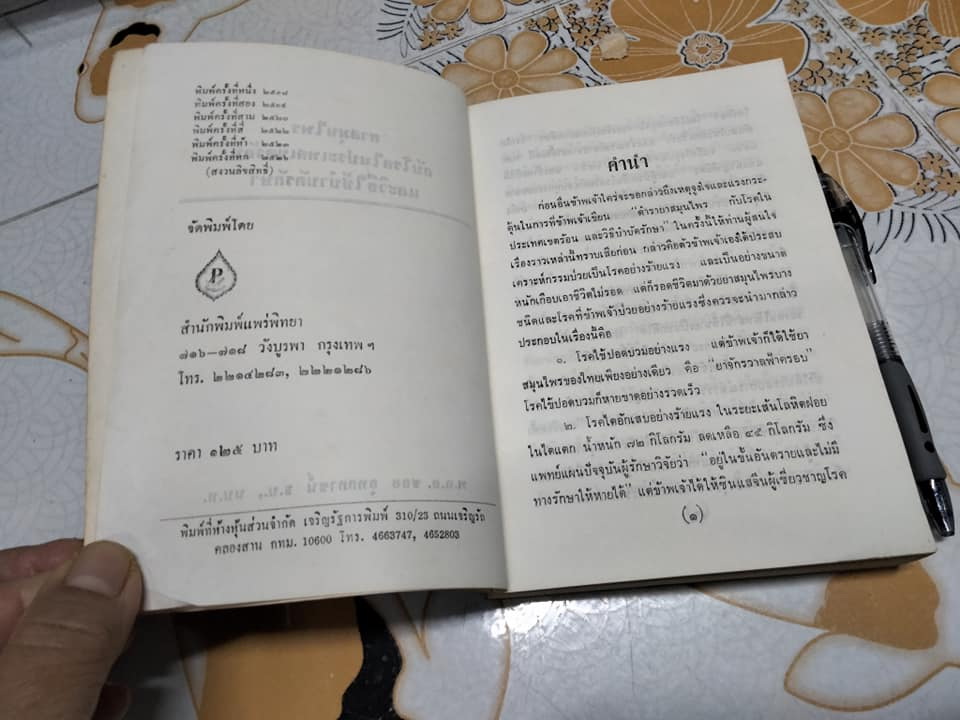 พิมพ์ครั้งที่หนึ่ง ๒๕๐๗
พิมพ์ครั้งที่สอง ๒๕๑๔
พิมพ์ครั้งที่สาม ๒๕๒๐
พิมพ์ครั้งที่สี่ ๒๕๒๒
พิมพ์ครั้งที่ห้า ๒๕๒๓
พิมพ์ครั้งที่หก ๒๕๒๖
(สงวนลิขสิทธิ์)
จัดพิมพ์โดย
P
สำนักพิมพ์แพร่พิทยา
๗๑๖—๗๑๘ วังบูรพา กรุงเทพ ฯ
โทร. ๒๒๑๔๒๘๓, ๒๒๒๑๒๘๖
ราคา ๑๒๕ บาท
พิมพ์ที่ห้างหุ้นส่วนจำกัด เจริญรัฐการพิมพ์ 310/23 ถนนเจริญรัถ
คลองสาน กทม. 10600 โทร. 4663747, 4652803
คำนำ
ก่อนอื่นข้าพเจ้าใคร่จะขอกล่าวถึงเหตุจูงใจและแรงกระ-
ตุ้นในการที่ข้าพเจ้าเขียน "ตำรายาสมุนไพร กับโรคใน
ประเทศเขตร้อน และวิธีบำบัดรักษา" ในครั้งนี้ให้ท่านผู้สนใจ
เรื่องราวเหล่านี้ทราบเสียก่อน กล่าวคือตัวข้าพเจ้าเองได้ประสบ
เคราะห์กรรมป่วยเป็นโรคอย่างร้ายแรง และเป็นอย่างขนาด
หนักเกือบเอาชีวิตไม่รอด แต่ก็รอดชีวิตมาด้วยยาสมุนไพรบาง
ชนิดและโรคที่ข้าพเจ้าป่วยอย่างร้ายแรงซึ่งควรจะนำมากล่าว
ประกอบในเรื่องนี้คือ
๑. โรคไข้ปอดบวมอย่างแรง แต่ข้าพเจ้าก็ได้ใช้ยา
สมุนไพรของไทยเพียงอย่างเดียว คือ "ยาจักรวาลฟ้าครอบ"
โรคไข้ปอดบวมก็หายขาดอย่างรวดเร็ว
๒. โรคไตอักเสบอย่างร้ายแรง ในระยะเส้นโลหิตฝอย
ในไตแตก น้ำหนัก ๗๒ กิโลกรัม ลดเหลือ ๔๕ กิโลกรัม ซึ่ง
แพทย์แผนปัจจุบันผู้รักษาวิจัยว่า "อยู่ในขั้นอันตรายและไม่มี
ทางรักษาให้หายได้" แต่ข้าพเจ้าได้ให้ซินแสจีนผู้เชี่ยวชาญโรค
(๑)